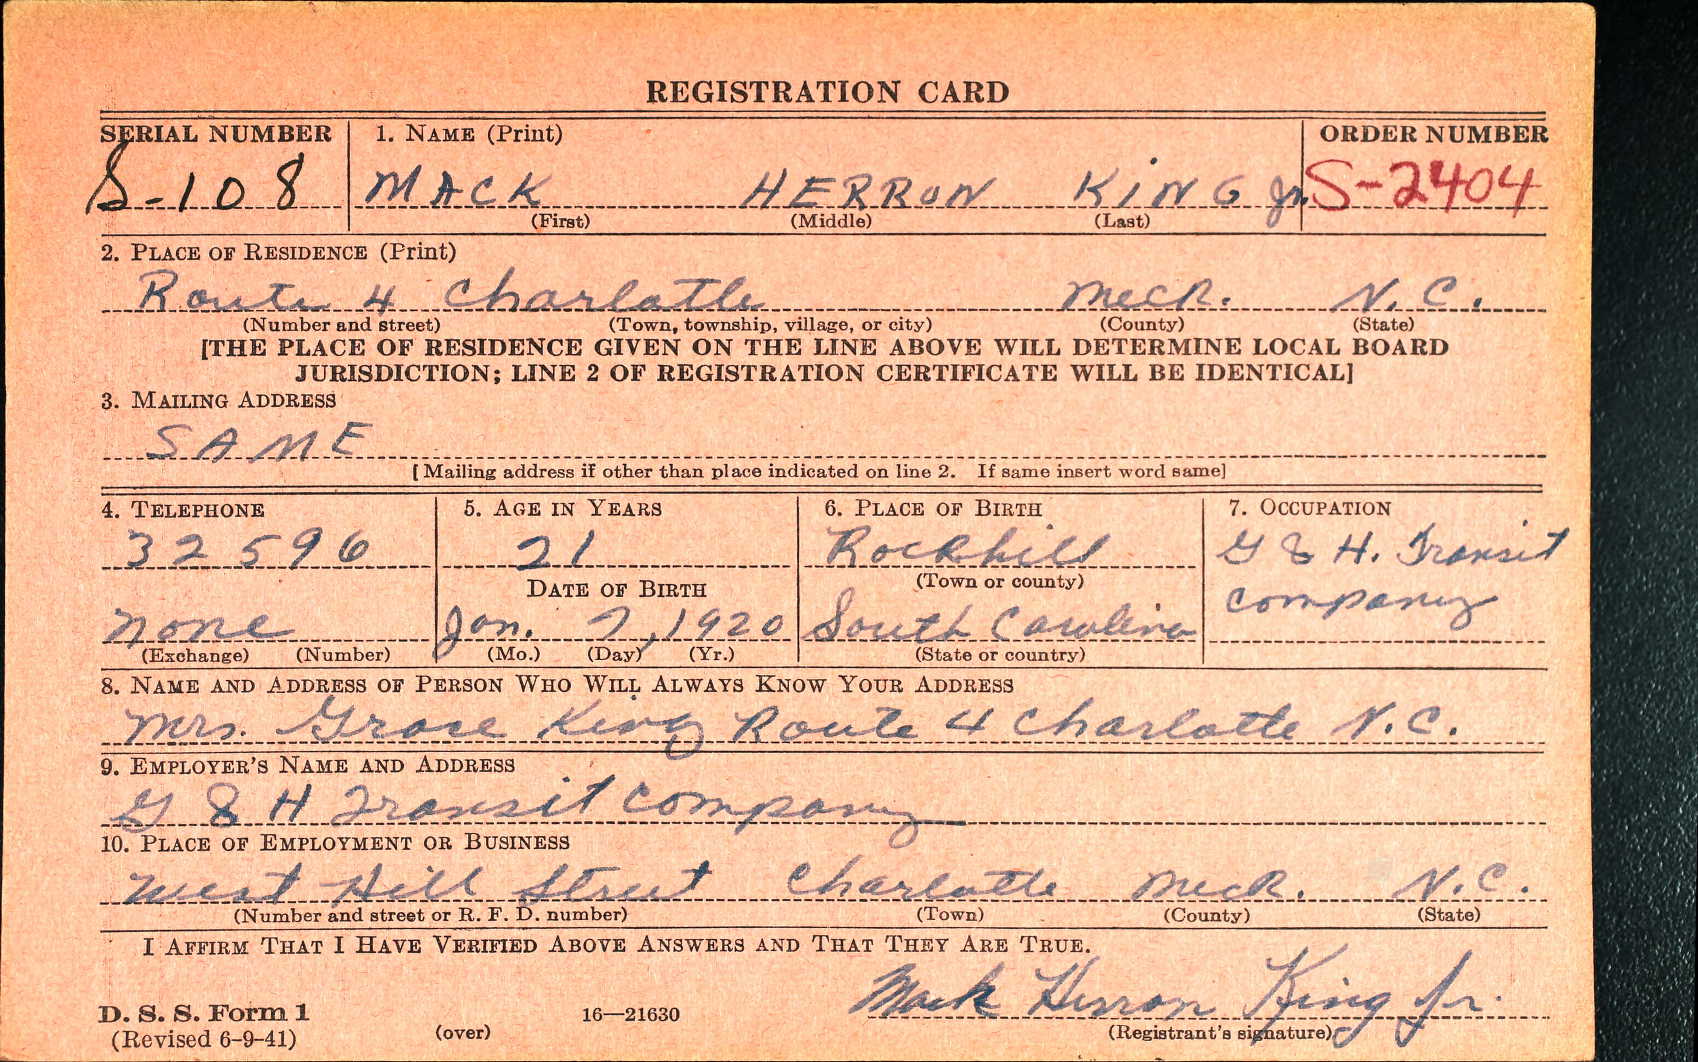 REGISTRATION CARD
SERIAL NUMBER 1. NAME (Print) ORDER NUMBER
S-108 MACK HERRON KING Jr. S-2404
(First) (Middle) (Last)
2. PLACE OF RESIDENCE (Print)
Route 4 Charlotte Meck. N.C.
(Number and street) (Town, township, village, or city) (County) (State)
[THE PLACE OF RESIDENCE GIVEN ON THE LINE ABOVE WILL DETERMINE LOCAL BOARD
JURISDICTION; LINE 2 OF REGISTRATION CERTIFICATE WILL BE IDENTICAL]
3. MAILING ADDRESS
SAME
[Mailing address if other than place indicated on line 2. If same insert word same]
4. TELEPHONE 5. AGE IN YEARS 6. PLACE OF BIRTH 7. OCCUPATION
32596 21 Rockhill G & H. Transit
(Town or county)
DATE OF BIRTH
company
none Jan. 7, 1920 South Carolina
(Exchange) (Number) (Mo.) (Day) (Yr.) (State or country)
8. NAME AND ADDRESS OF PERSON WHO WILL ALWAYS KNOW YOUR ADDRESS
Mrs. Grace King Route 4 Charlotte N.C.
9. EMPLOYER'S NAME AND ADDRESS
G & H Transit Company
10. PLACE OF EMPLOYMENT OR BUSINESS
West Hill Street Charlotte Meck. N.C.
(Number and street or R. F. D. number) (Town) (County) (State)
I AFFIRM THAT I HAVE VERIFIED ABOVE ANSWERS AND THAT THEY ARE TRUE.
Mack Herron King Jr.
D. S. S. Form 1 16—21630
(Revised 6-9-41) (over) (Registrant's signature)